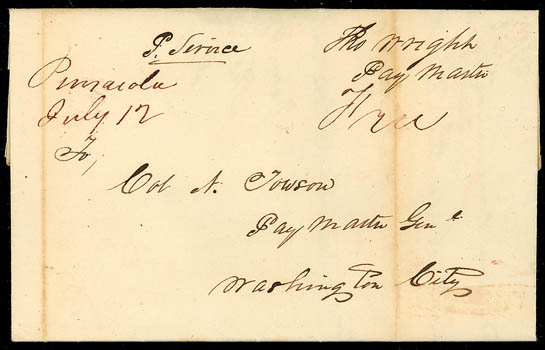 P. Service
Tho Wright
Pay Master
Free
Pensacola
July 12
To,
Col N. Towson
Pay Master Genl
Washington City